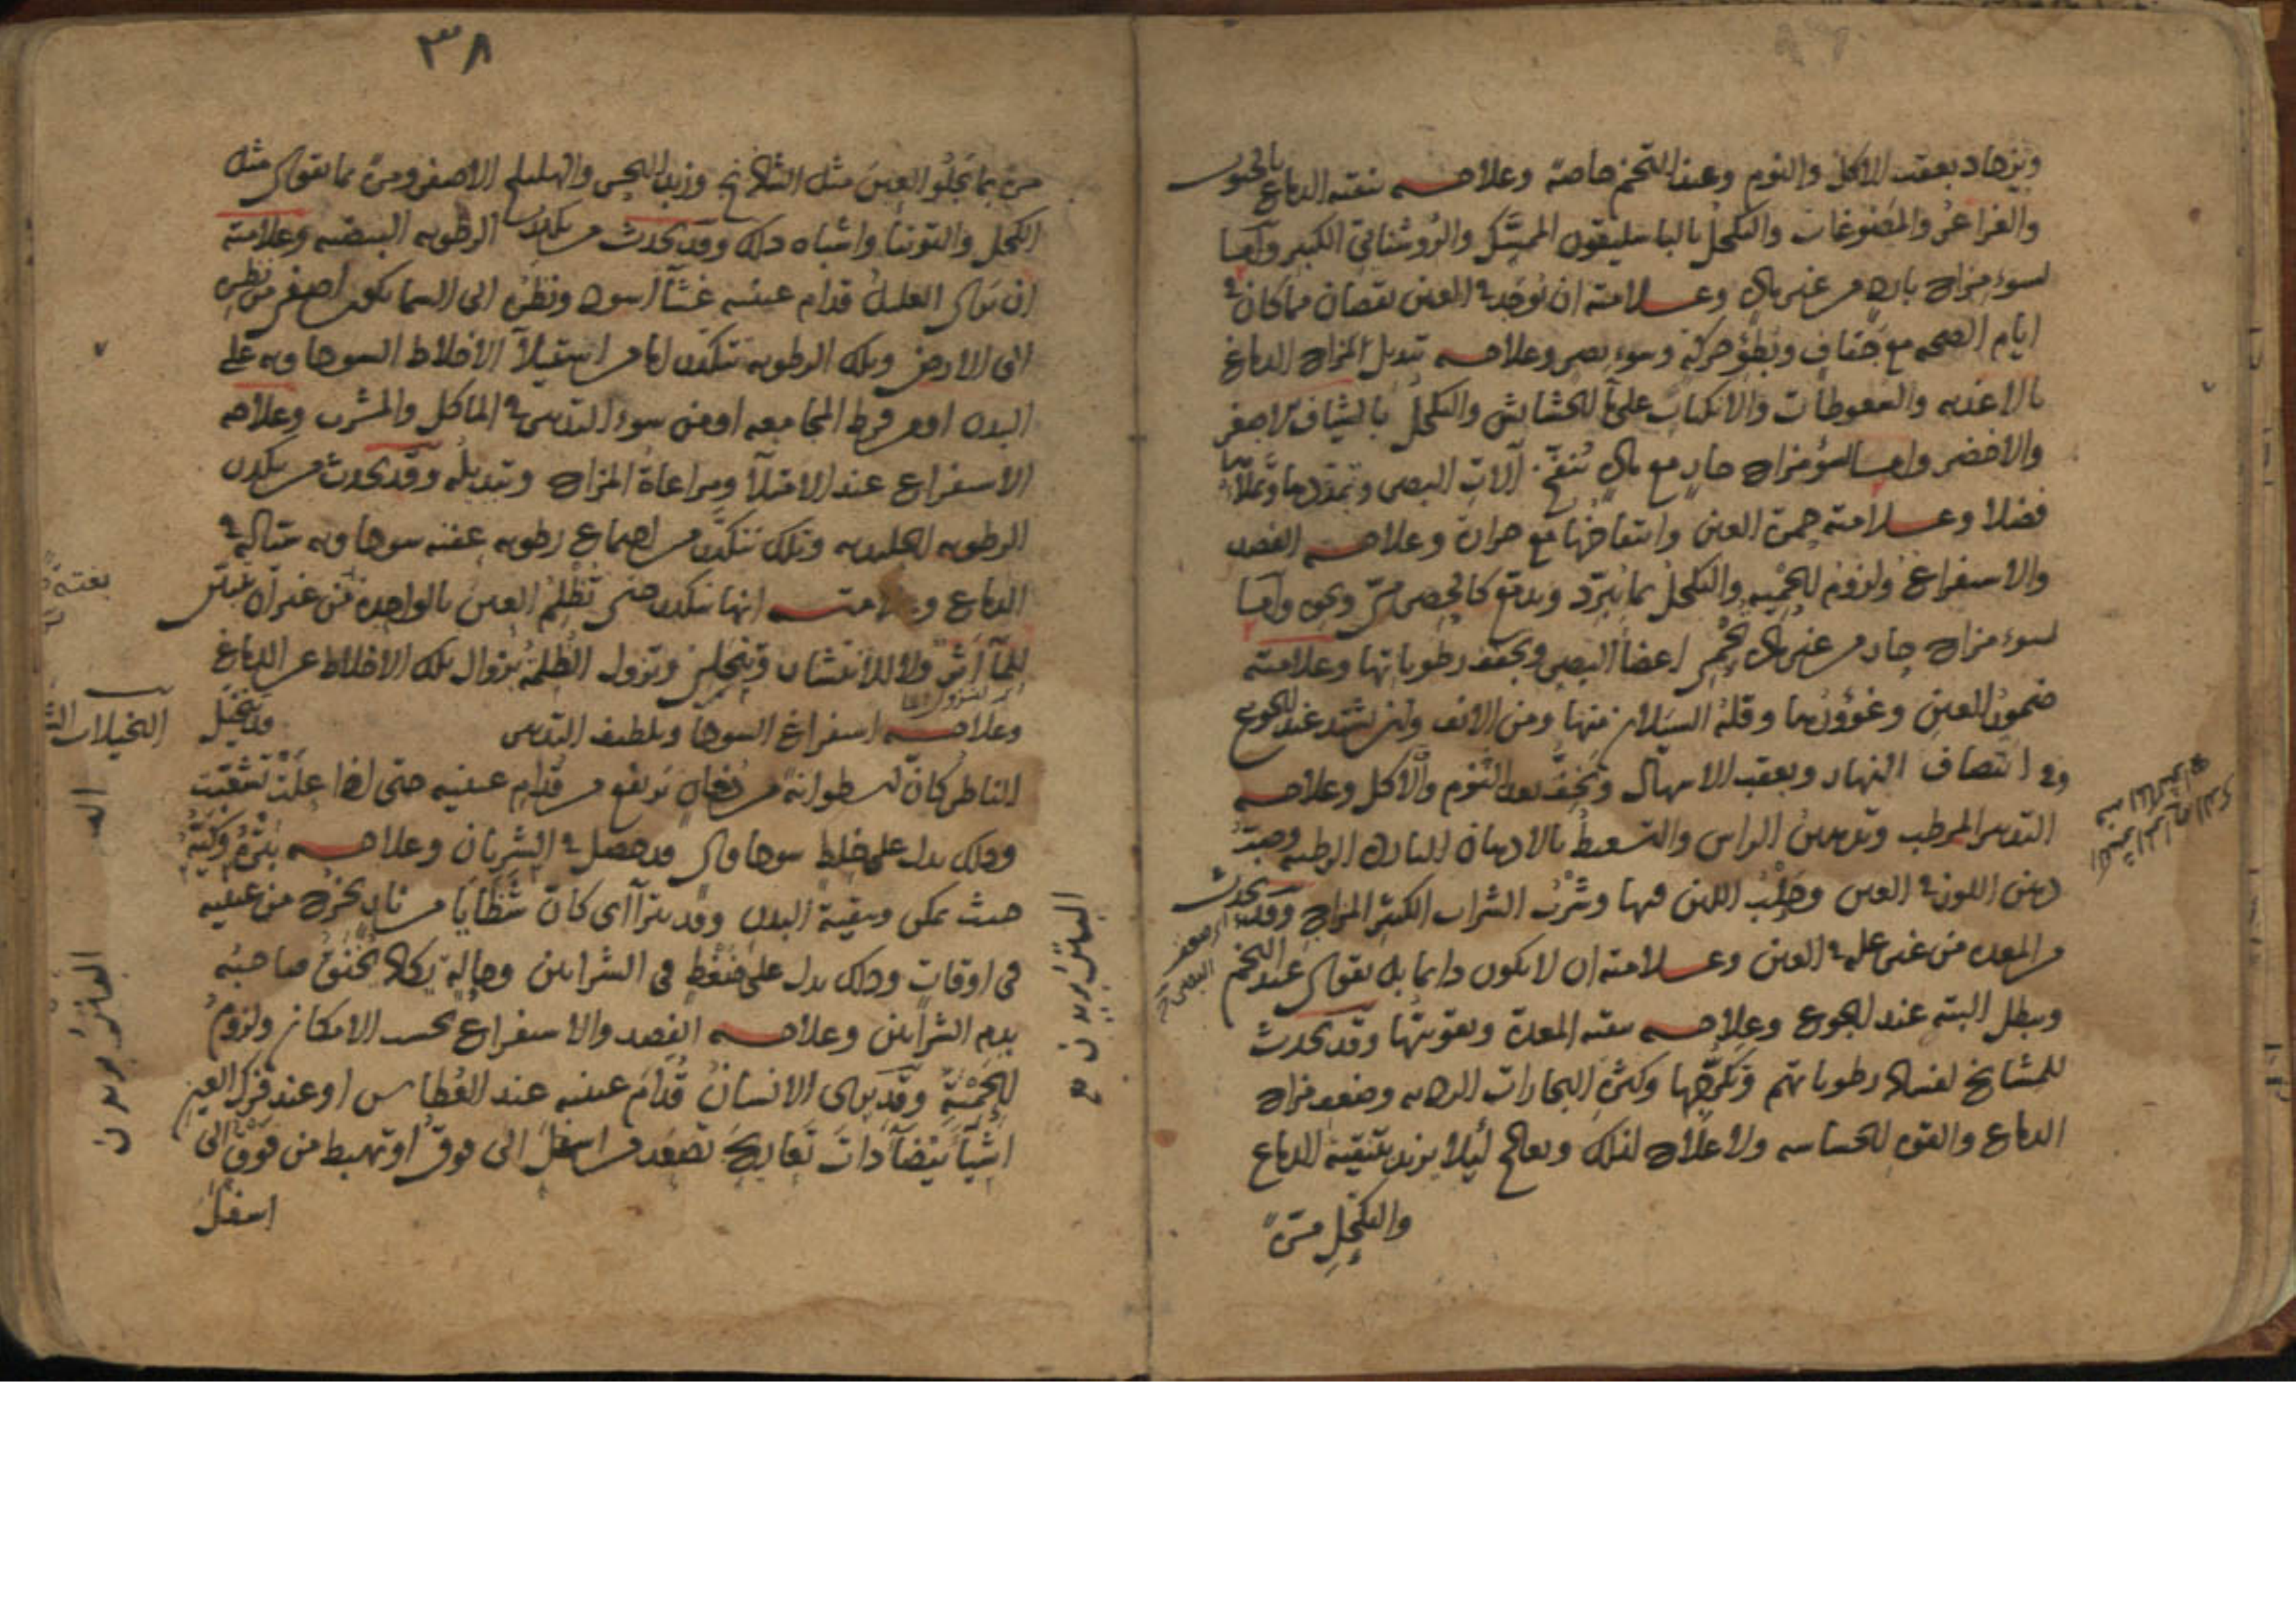 ويزداد بعقب الاكل والنوم وعند التخم خاصة وعلاجه تنقية الدماغ بالحبوب
والغراغر والمضوغات والتكحل بالباسليقون الممسك والروشنائي الكبير واما
لسوء مزاج بارد من غير مادة وعلامته ان توجد في العين نقصان مما كان في
ايام الصحة مع جفاف وبطؤ حركة وسوء بصر وعلاجه تبديل المزاج الدماغ
بالاغذيه والسعوطات والانكباب على الحشايش والتكحل بالشياف الاصفر
والاخضر واما لسؤ مزاج حار مع مادة تنفخ آلات البصر وتمددها وتملأها
فضلا وعلامته حمرة العين وانتفاخها مع حرارة وعلاجه الفصد
والاستفراغ ولزوم الحميه والتكحل بما يبرد ويدمع كالحصرمي ونحوه واما
لسوء مزاج حار من غير مادة اعضا البصر ويجفف رطوباتها وعلامته
ضمور العين وغؤورها وقلة السيلان منها ومن الانف وان يشتد عند الجوع
وفي انتصاف النهار وبعقب الاسهال ويخف بعد النوم والاكل وعلاجه
التدبير المرطب وتدهين الراس والتسعيط بالادهان الباردة الرطبه
دهن اللوز في العين وحلب اللبن فيها وشرب الشراب الكثير المزاج وقد يحدث
من المعدة من غير علة في العين وعلامته ان لا يكون دايما بل يقوى عند التخم
ويبطل البته عند الجوع وعلاجه تنقية المعدة وتقويتها وقد يحدث
للمشايخ لفساد رطوباتهم وتكدرها وكثرة البخارات الرديه وضعف مزاج
الدماغ والقوه الحساسه ولا علاج لذلك ويعالج لئلا يزيد بتنقية الدماغ
والتكحل مرة
٣٨
مرة بما يجلو العين مثل الشاذنج وزبد البحر والهليلج الاصفر ومرة مما يقوى مثل
الكحل والتوتيا واشباه ذلك وقد يحدث من تكدر الرطوبه البيضيه وعلامته
ان يرى العليل قدام عينيه غشاً اسود ونظره الى السما يكون اصفر من نظره
الى الارض وتلك الرطوبه تتكدر اما من استيلآ الاخلاط السوداويه على
البدن او من فرط المجامعه او من سوء التدبير في الماكل والمشرب وعلاجه
الاستفراغ عند الامتلآ ومراعاة المزاج وتبديله وقد يحدث من تكدر
الرطوبه الجليديه وتلك تتكدر من اجتماع رطوبه عفنه سوداويه في
الدماغ وعلامته انها تتكدر حتى تظلم العين بالواحدة من غير ان يتبين
للمآ اثر ولا للانتشار وتزول الظلمة بزوال تلك الاخلاط عن الدماغ
وعلاجه استفراغ السودا وتلطيف التدبير وقد يتخيل
الناظر كان اسطوانة من دخان ترتفع من قدام عينيه حتى اذا علت تشعبت
وذلك يدل على خلط سوداوى قد حصل في الشريان وعلاجه بتره وكيه
حيث يمكن وتنقية البدن وقد يترآأى كان شظايا من نار تخرج من عينيه
في اوقات وذلك يدل على ضغط في الشرايين وحاله يكاد يختنق صاحبه
بدم الشرايين وعلاجه الفصد والاستفراغ بحسب الامكان ولزوم
الحمية وقد يرى الانسان قدام عينيه عند العطاس او عند فرك العين
اشيآ بيضآ ذات تعاريج تصعد من اسفل الى فوق او تهبط من فوق الى
اسفل
بغتة
التخيلات